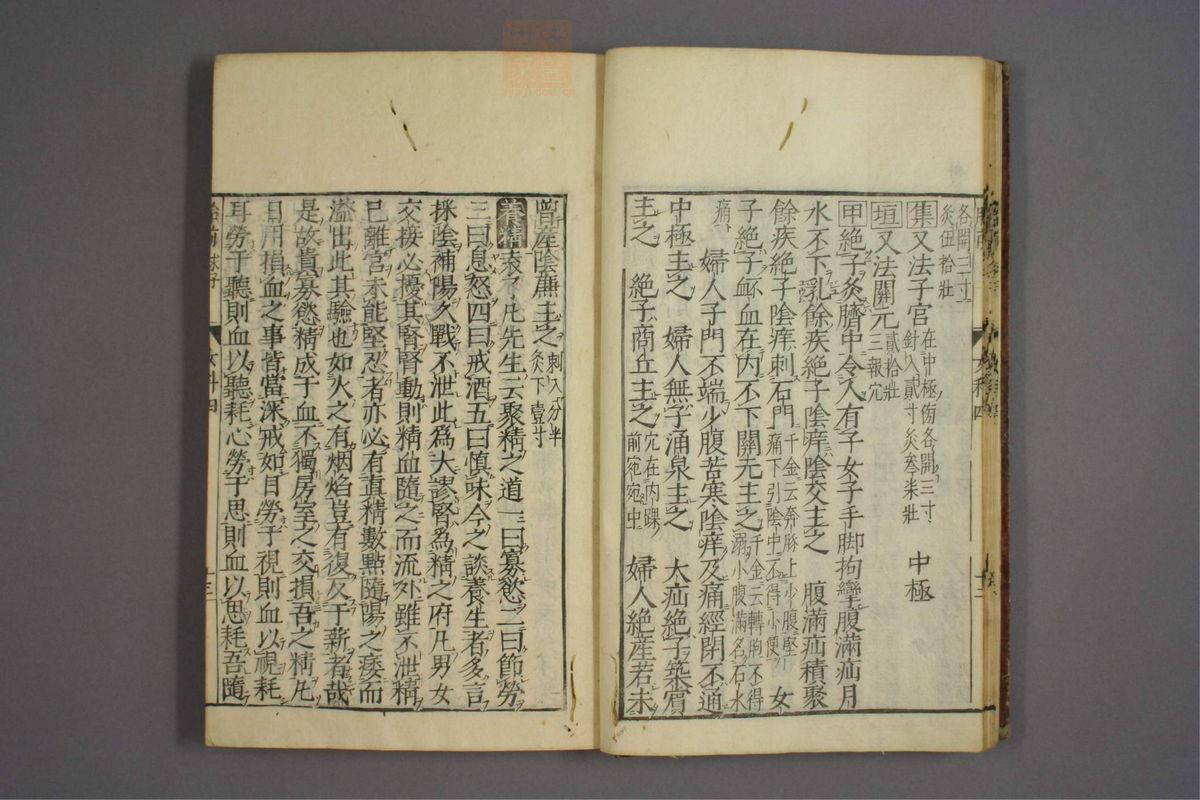 各開三寸
灸伍拾壯
集又法子宮在中極傍各開三寸針入貳寸灸叁柒壯 中極
垣又法關元貳拾壯三報穴
甲絶子灸臍中令人有子女子手脚拘攣腹滿疝月
水不下乳餘疾絶子陰痒陰交主之 腹滿疝積聚
餘疾絶子陰痒刺石門千金云奔豚上少腹堅痛下引陰中不得小便 女
子絶子衃血在内不下關元主之千金云轉胞不得溺小腹滿名石水
痛 婦人子門不端少腹苦寒陰痒及痛經閉不通
中極主之 婦人無子涌泉主之 大疝絶子築賓
主之 絶子商丘主之穴在内踝前宛宛中 婦人絶産若未
曽産陰廉主之刺入八分半灸下壹寸
養精袁了凡先生云聚精之道一曰寡慾二曰節勞
三曰息怒四曰戒酒五曰慎味今之談養生者多言
採陰補陽久戰不泄此爲大謬腎為精之府凡男女
交接必擾其腎腎動則精血隨之而流外雖不泄精
已離宮未能堅忍者亦必有眞精數點隨陽之痿而
溢出此其驗也如火之有烟焰豈有復反于薪者哉
是故貴寡慾精成于血不獨房室之交損吾之精凡
日用損血之事皆當深戒如目勞于視則血以視耗
耳勞于聽則血以聽耗心勞于思則血以思耗吾隨
胎前 求子 女科四 十三